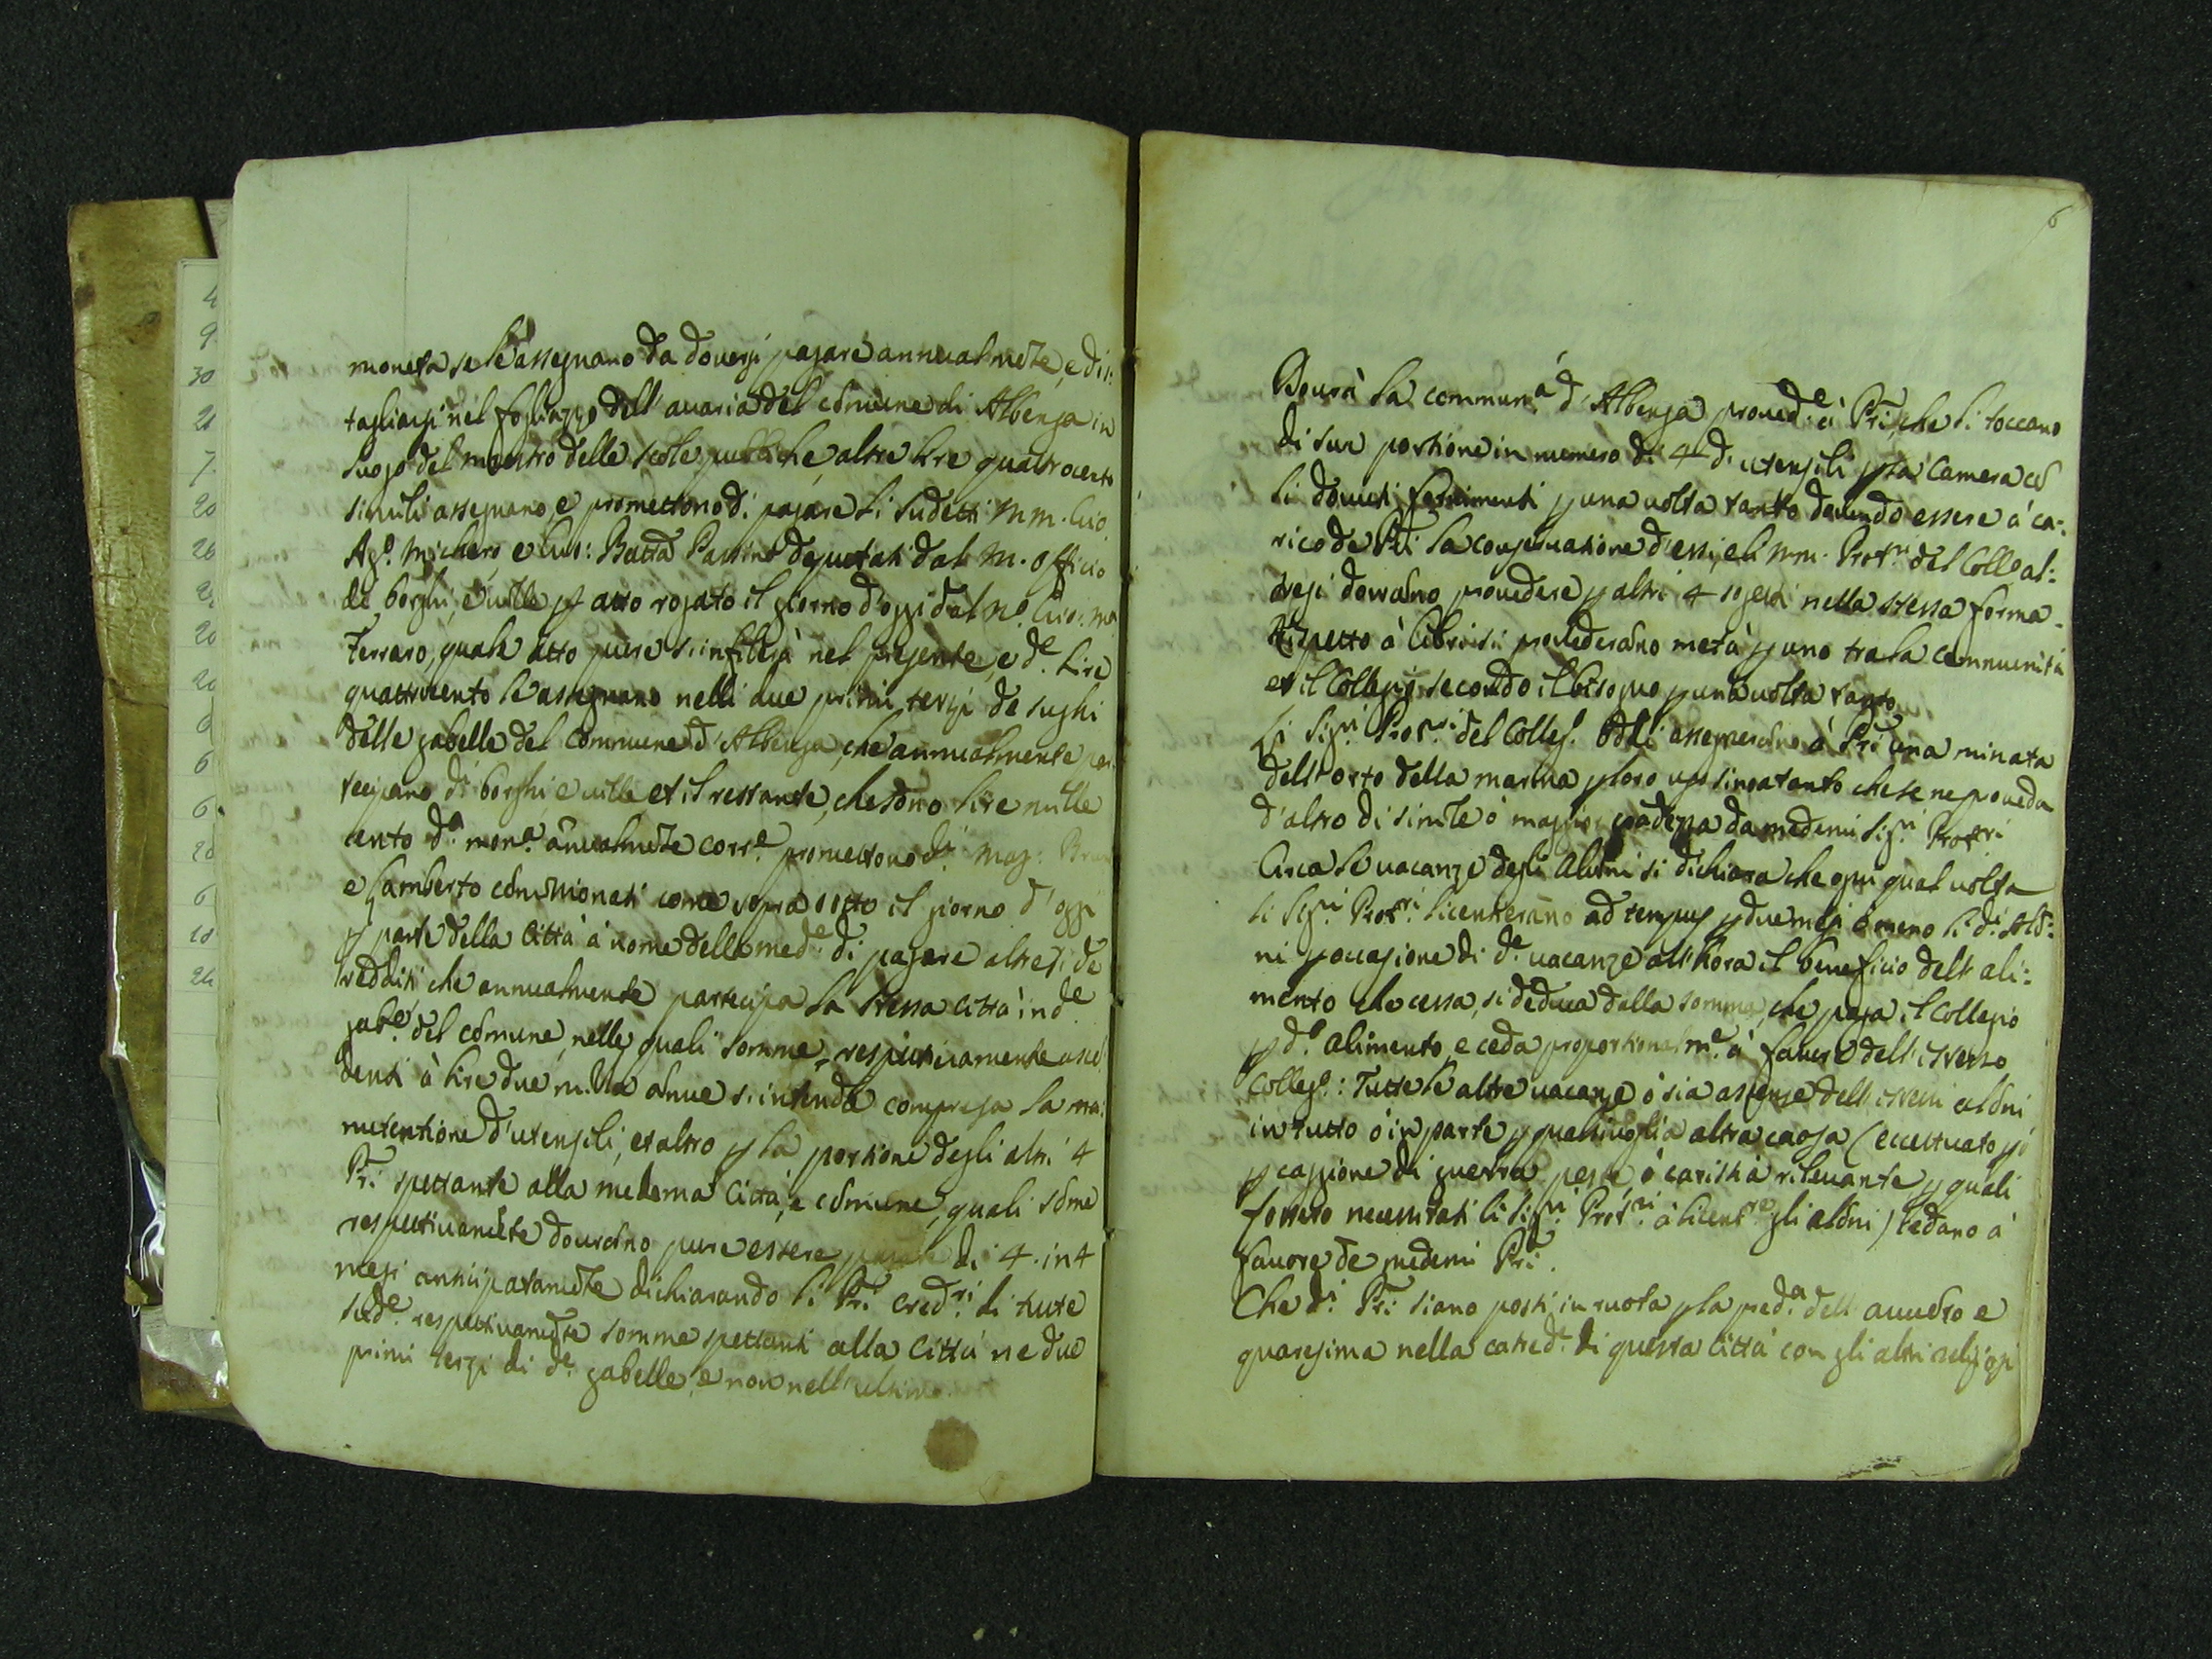 moneta se le assegnano da douersi pagare annualmẽte, e dis:
tagliarsi nel fogliazzo dell'auaria del comũne di Albenga in
luogo del maestro delle scole publiche, altre lire quattrocento
simili assegnano, e promettono di pagare li sudetti M.M. Gio
Ag.o e Gio: Batta deputati dal M. Officio
de borghi, e uille p atto rogato il giorno d'oggi dal N.o Gio: M.a
Ferraro, quale atto pure si infilerà nel presente, e d.e lire
quattrocento le assegnano nelli due primi terzi de
delle gabelle del Commune d'Albenga, che annualmente par
tecipano di borghi e uille et il restante, che sono lire mille
cento d.a mon.a ãnualmẽte corr.e promettono d.i Mag:
e Lamberto comissionati come sopra sotto il giorno d'oggi
p parte della Città à nome della med.e di pagare altresi de
redditi che annualmente partecipa la stessa Città in d.e
gab.e del comũne, nelle quali somme respettiuamente ascẽ
denti à lire due milla ãnue s'intenda compresa la ma:
nutentione d'utensili, et altro p la portione degli altri 4
Pri: spettante alla medema Città, e comũne, quali sõme
respettiuamẽte dourãno pure essere pagate di 4. in 4
mesi anticipatamẽte dichiarando li Pri: cred.ri di tutte
sud.e respettiuamẽte somme spettanti alla Città ne due
primi terzi di d.e gabelle, e non nell'ultimo
6
Dourà la commun.à d'Albenga proued.e à Pri, che li toccano
di sua portione in numero di 4 d'utensili p la Camera cõ
li douuti fornimenti p una uolta tanto douendo essere à ca:
rico de Pri la conseruatione d'essi, e li M.M. Prot.ri del Coll.o al:
tresi dourãno prouedere p altri 4 sogetti nella stessa forma.
Rispetto à libri si prouederãno metà p uno tra la communità
et il Collegio secondo il bisogno p una uolta tanto
Li Sig.ri Prot.ri del Colleg. Oddi assegnerãno à Pri una minata
dell'orto della marina p loro uso sino a tanto che se ne proueda
d'altro di simile ò maggior da medemi Sig.ri Prot.ri
Circa le uacanze degli Alũni si dichiara che ogni qual uolta
li Sig.ri Prot.ri licenterãno ad tempus p due mesi ò meno li d.i Alũ:
ni p occasione di d.e uacanze all'hora il beneficio dell'ali:
mento che cessa, si deduca dalla somma, che paga il Collegio
p d.o alimento, e ceda proportionalm.e à fauore dell'istesso
Colleg.o: Tutte le altre uacanze ò sia assenze delli istessi alũni
in tutto ò in parte p qualsiuoglia altra caosa (eccettuato p ò
p caggione di guerra peste, ò caristia rileuante p quali
fossero necessitati li Sig.ri Prot.ri à licent.re gli alũni) cedano à
fauore de medemi Pri.
Che d.i Pri: siano posti in ruota p la pred.a dell'auuẽto e
quaresima nella catred.e di questa Città con gli altri religiosi
4
9
30
21
7
20
26
2
20
20
9
6
6
20
6
10
24